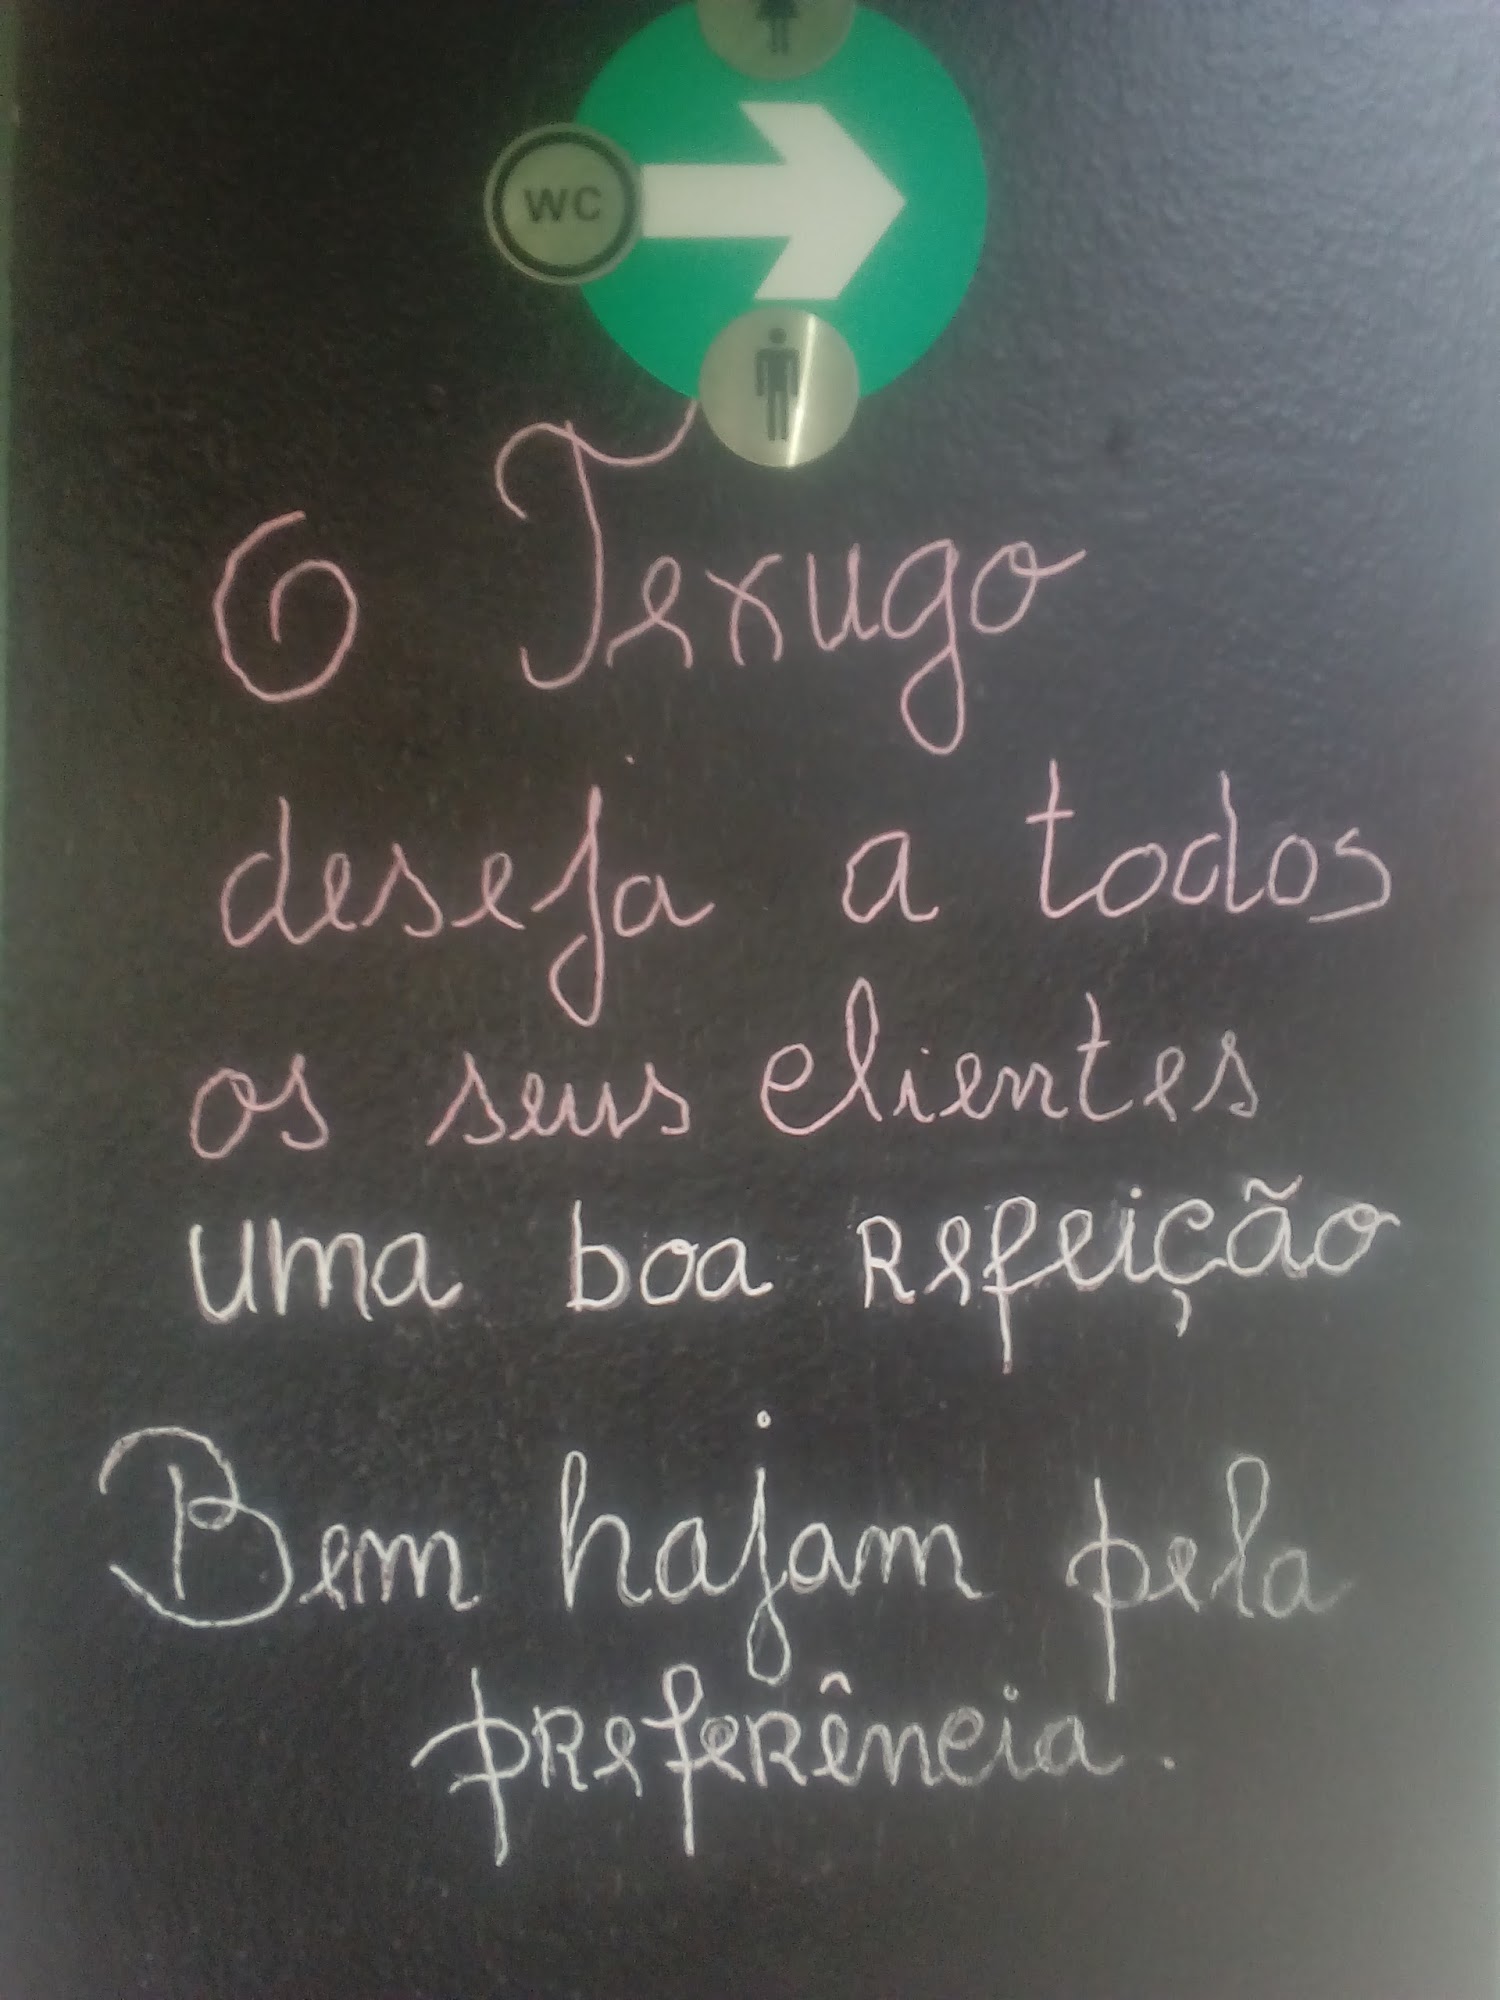 WC
O Texugo
deseja a todos
os seus clientes
uma boa refeição
Bem hajam pela
preferência.